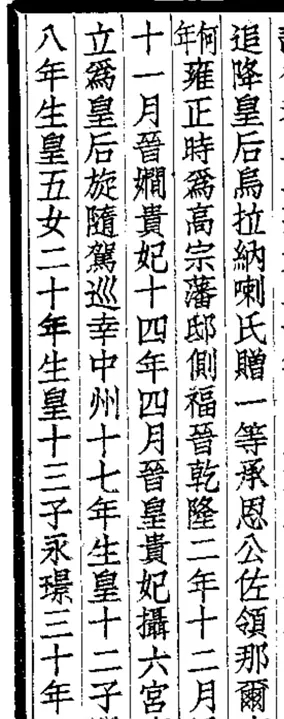 追降皇后烏拉納喇氏贈一等承恩公佐領那爾
何年雍正時爲高宗藩邸側福晉乾隆二年十二月
十一月晉嫻貴妃十四年四月晉皇貴妃攝六宮
立爲皇后旋隨駕巡幸中州十七年生皇十二子
八年生皇五女二十年生皇十三子永璟三十年